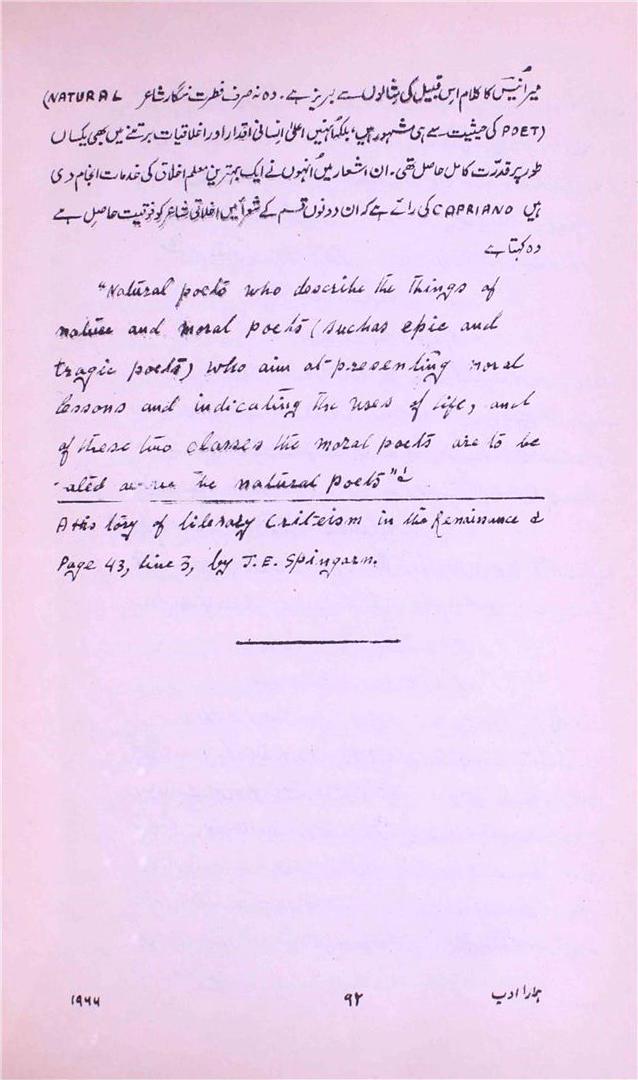 میر انیس کا کلام اس قبیل کی مثالوں سے لبریز ہے۔ وہ نہ صرف فطرت نگار شاعر (NATURAL
POET) کی حیثیت سے ہی مشہور ہیں، بلکہ انہیں اعلیٰ انسانی اقدار اور اخلاقیات برتنے میں بھی یکساں
طور پر قدرت کامل حاصل تھی۔ ان اشعار میں انہوں نے ایک بہترین معلم اخلاق کی خدمات انجام دی
ہیں CAPRIANO کی رائے ہے کہ ان دونوں قسم کے شعرأ میں اخلاقی شاعر کو فوقیت حاصل ہے
وہ کہتا ہے
"Natural poets who describe the things of
nature and moral poets (such as epic and
tragic poets) who aim at presenting moral
lessons and indicating the uses of life, and
of these two classes the moral poets are to be
ated the natural poets"
A his tory of literary Criteism in the Renaissance
Page 43, line 3, by J.E. Spingarn.
ہمارا ادب
۹۲
۱۹۶۶